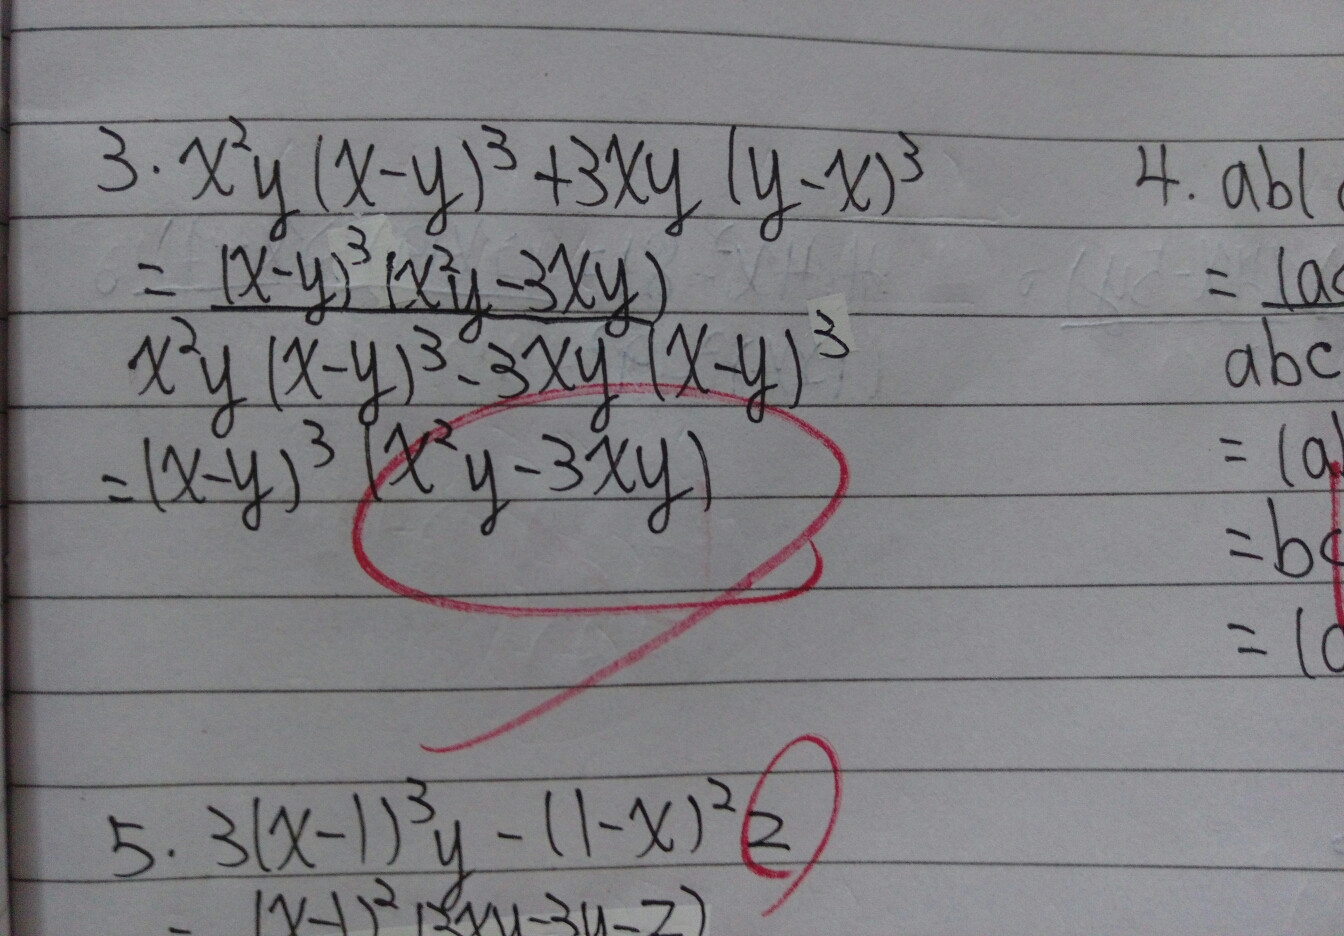 3. x²y(x-y)³+3xy(y-x)³
= (x-y)³(x²y-3xy)
x²y(x-y)³-3xy(x-y)³
=(x-y)³(x²y-3xy)
4. ab(
=
abc
= (a
=bc
= (
5. 3(x-1)³y-(1-x)²z
= (x-1)²(3xy-3y-z)